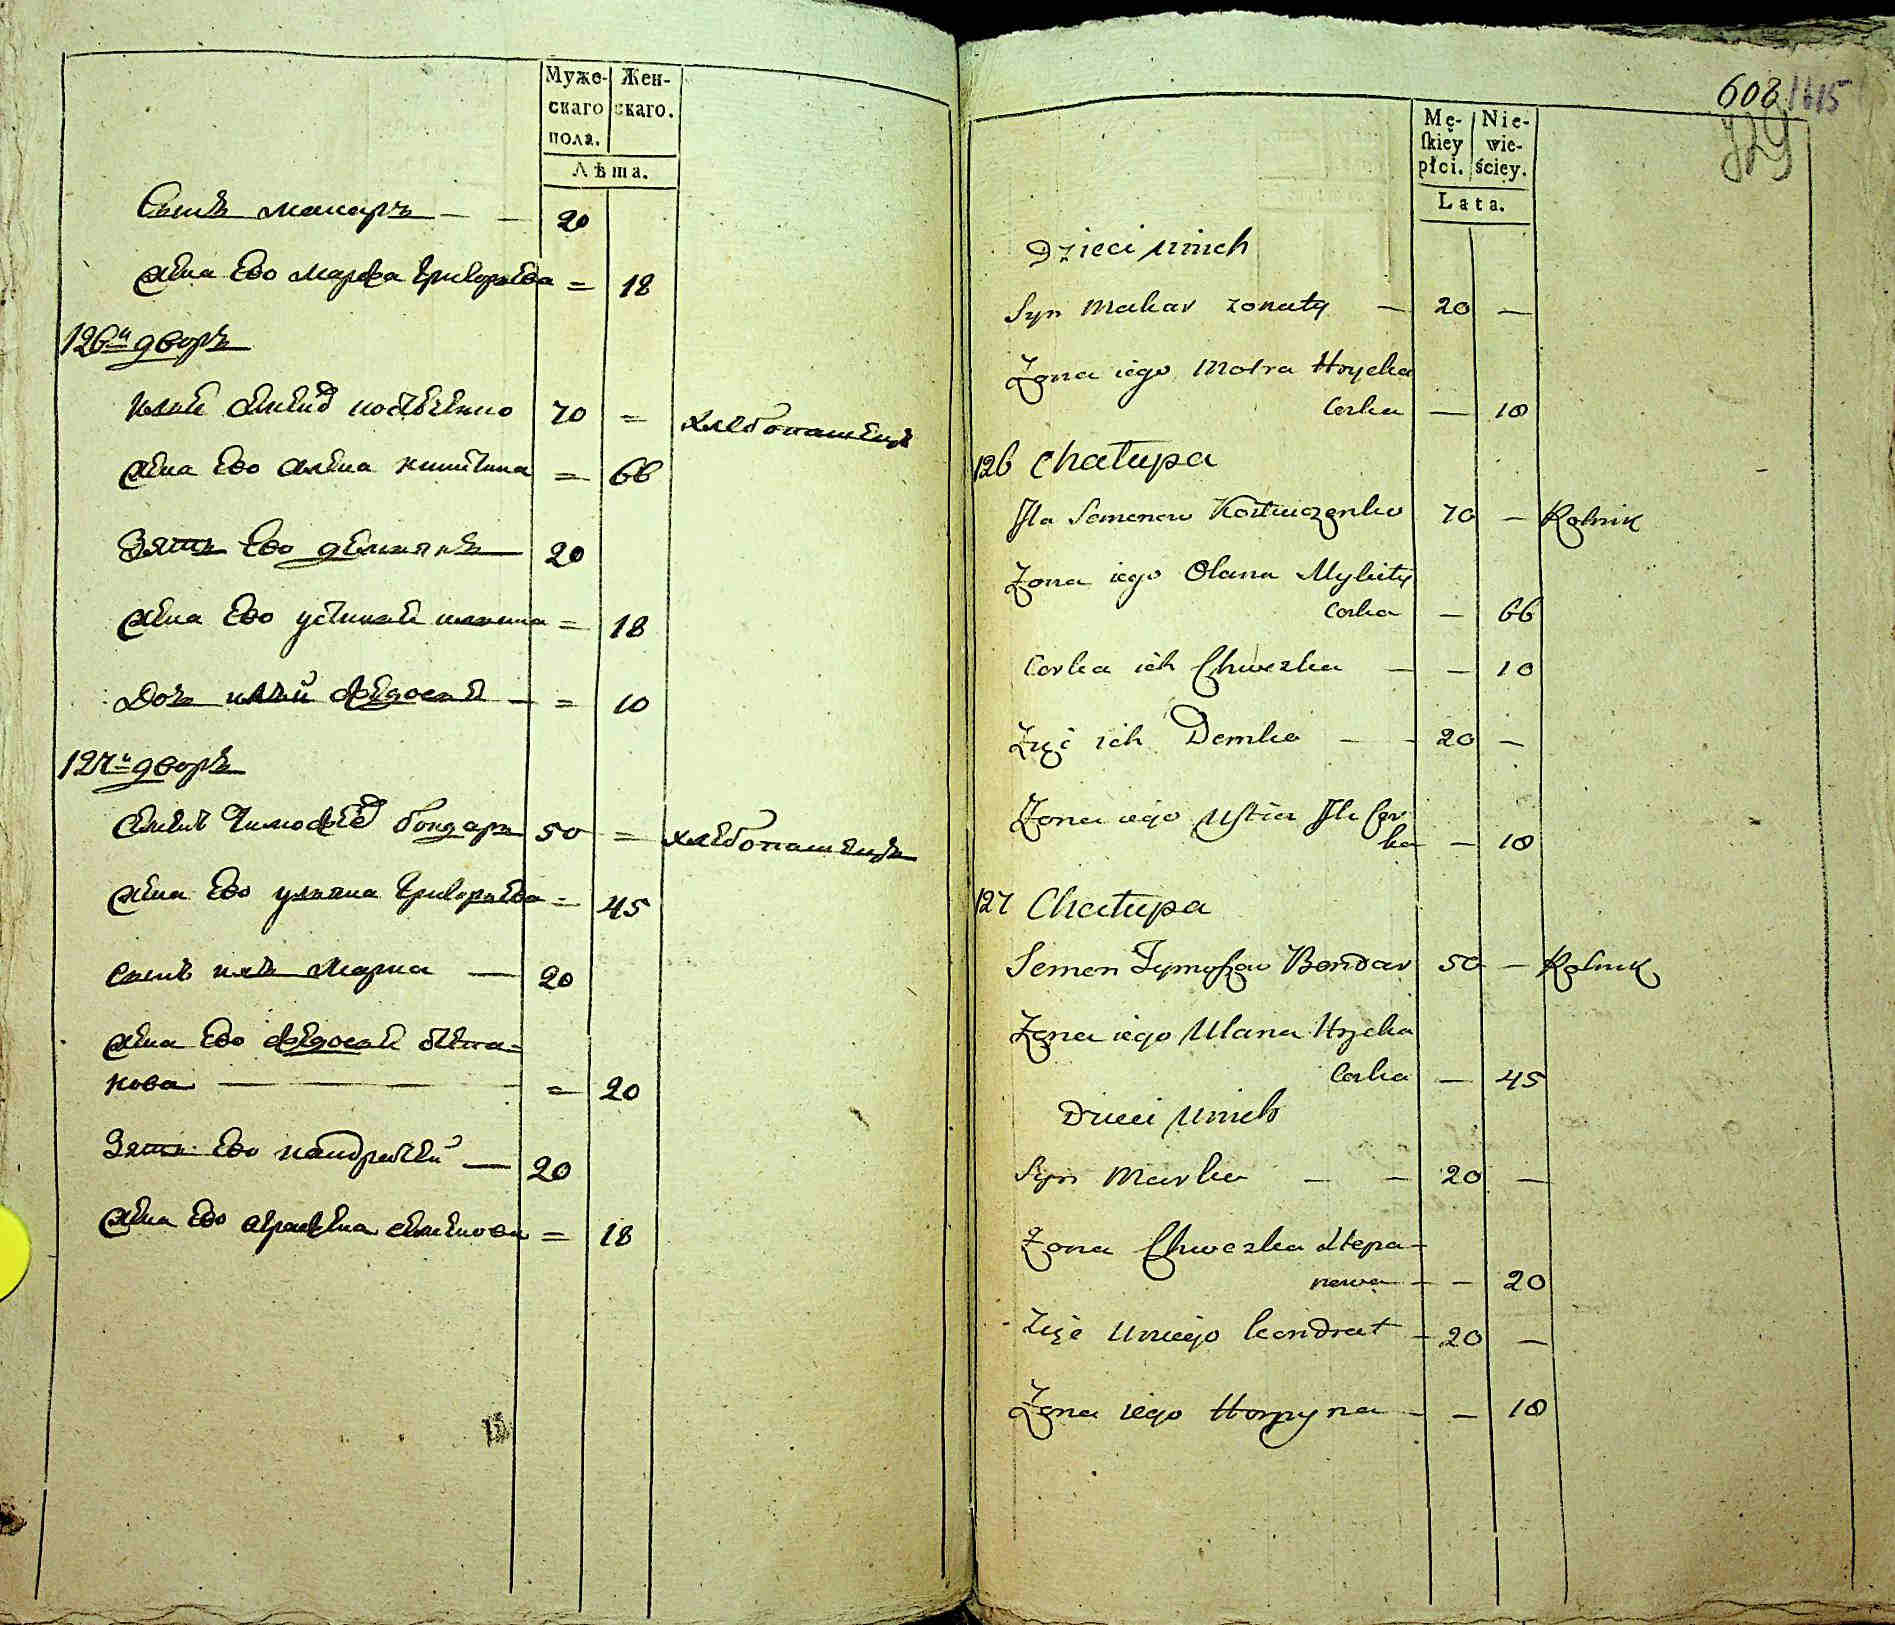 Муже-
скаго
пола.
Жен-
скаго.
Лѣта.
Сынъ макаръ — — 20
жена Ево марфа григорьева = 18
126й дворъ
70 = хлебопашецъ
жена Ево алена никитина = 66
Зять Ево демьянъ 20
жена Ево устинья ильина = 18
Дочь федосья — = 10
127й дворъ
семенъ тимофеевъ бондарь 50 = хлебопашецъ
жена Ево ульяна григорьева = 45
сынъ ихъ марка — 20
жена Ево федосья степа-
нова — = 20
Зять Ево кондратей — 20
жена Ево агрипена семенова = 18
608 1615
729
Mę-
skiey
płci.
Nie-
wie-
ściey.
Lata.
Dzieci u nich
Syn Makar zonaty — 20 —
Zona iego Motra Hrycka
Corka — 18
126 Chałupa
Jla Semenow Kostiuczenko 70 — Rolnik
Zona iego Olana Mykity
Corka — 66
Corka ich Chweska — — 10
Zięć ich Demko — — 20 —
Zona iego Ustia Jla Cor
ka — 18
127 Chałupa
Semen Tymofow Bondar 50 — Rolnik
Zona iego Ulana Hrycka
Corka — 45
Dzieci u nich
Syn Marko — — 20 —
Zona Chweska Stepa-
nowa — — 20
Zięć u niego kondrat — 20 —
Zona iego Horpyna — — 18